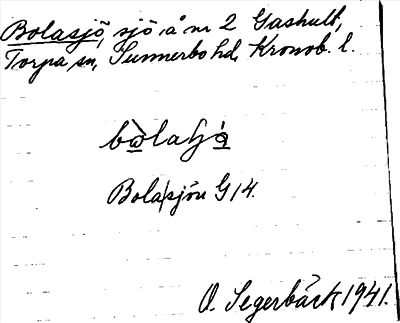 Bolasjö, sjö å nr 2 Gashult,
Torpa sn, Sunnerbo hd, Kronob. l.
Bolasjön G 14.
O. Segerbäck 1941.